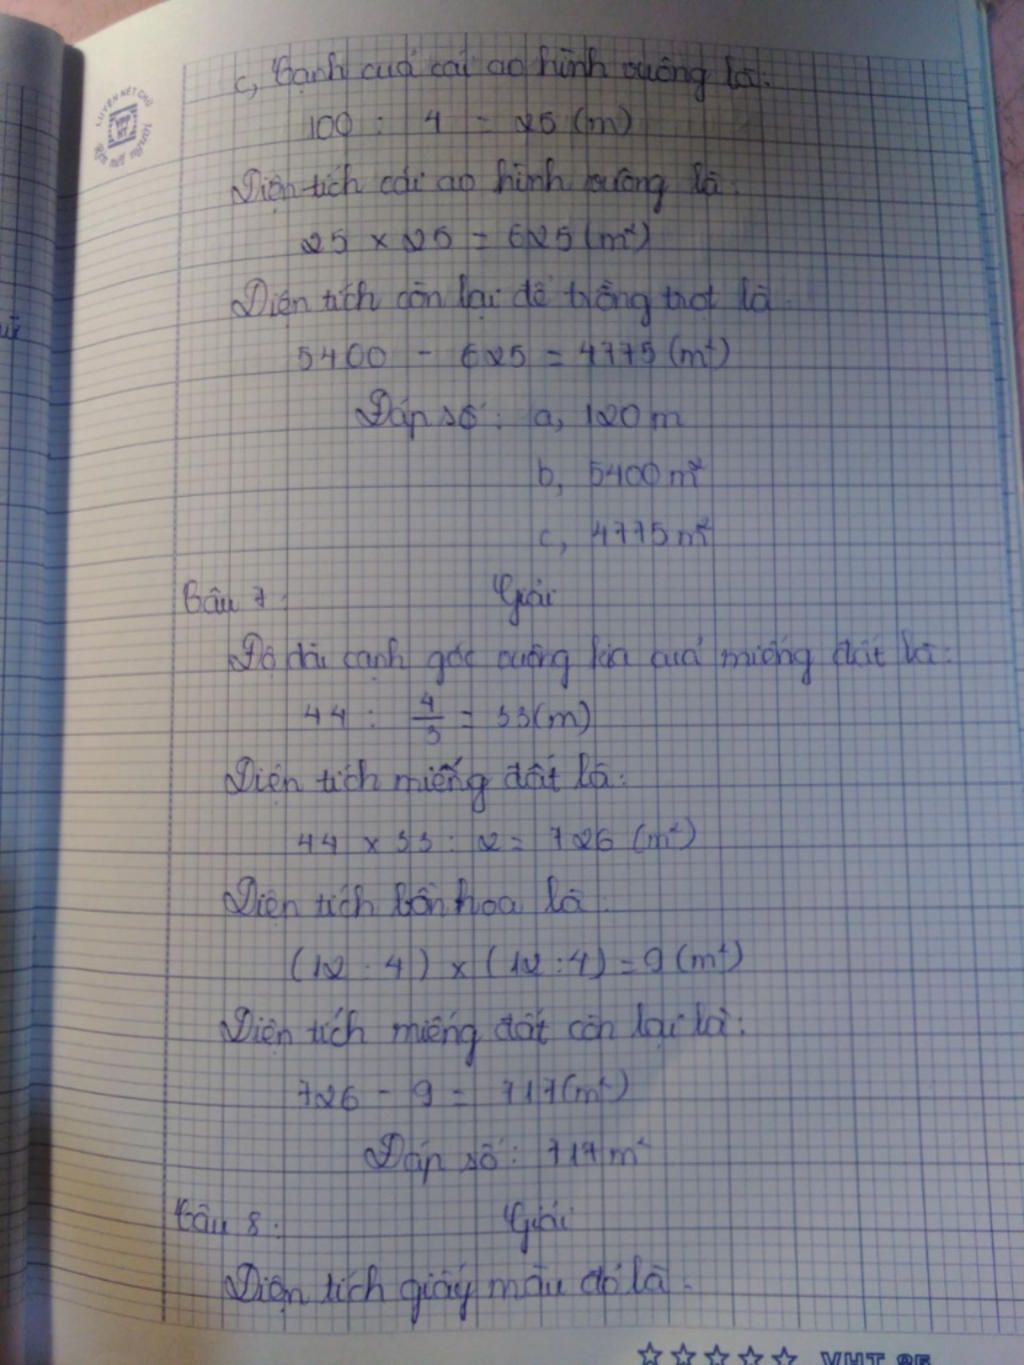 c, Cạnh của cái ao hình vuông là:
100 : 4 = 25 (m)
Diện tích cái ao hình vuông là:
25 x 25 = 625 (m²)
Diện tích còn lại để trồng trọt là
5400 - 625 = 4775 (m²)
Đáp số: a, 120 m
b, 5400 m²
c, 4775 m²
Câu 7: Giải
Độ dài cạnh góc vuông kia của miếng đất là:
44 : 4/3 = 33 (m)
Diện tích miếng đất là:
44 x 33 : 2 = 726 (m²)
Diện tích bồn hoa là
(12 : 4) x (12 : 4) = 9 (m²)
Diện tích miếng đất còn lại là:
726 - 9 = 717 (m²)
Đáp số: 717 m²
Câu 8: Giải
Diện tích giấy màu đỏ là:
LUYỆN NÉT CHỮ